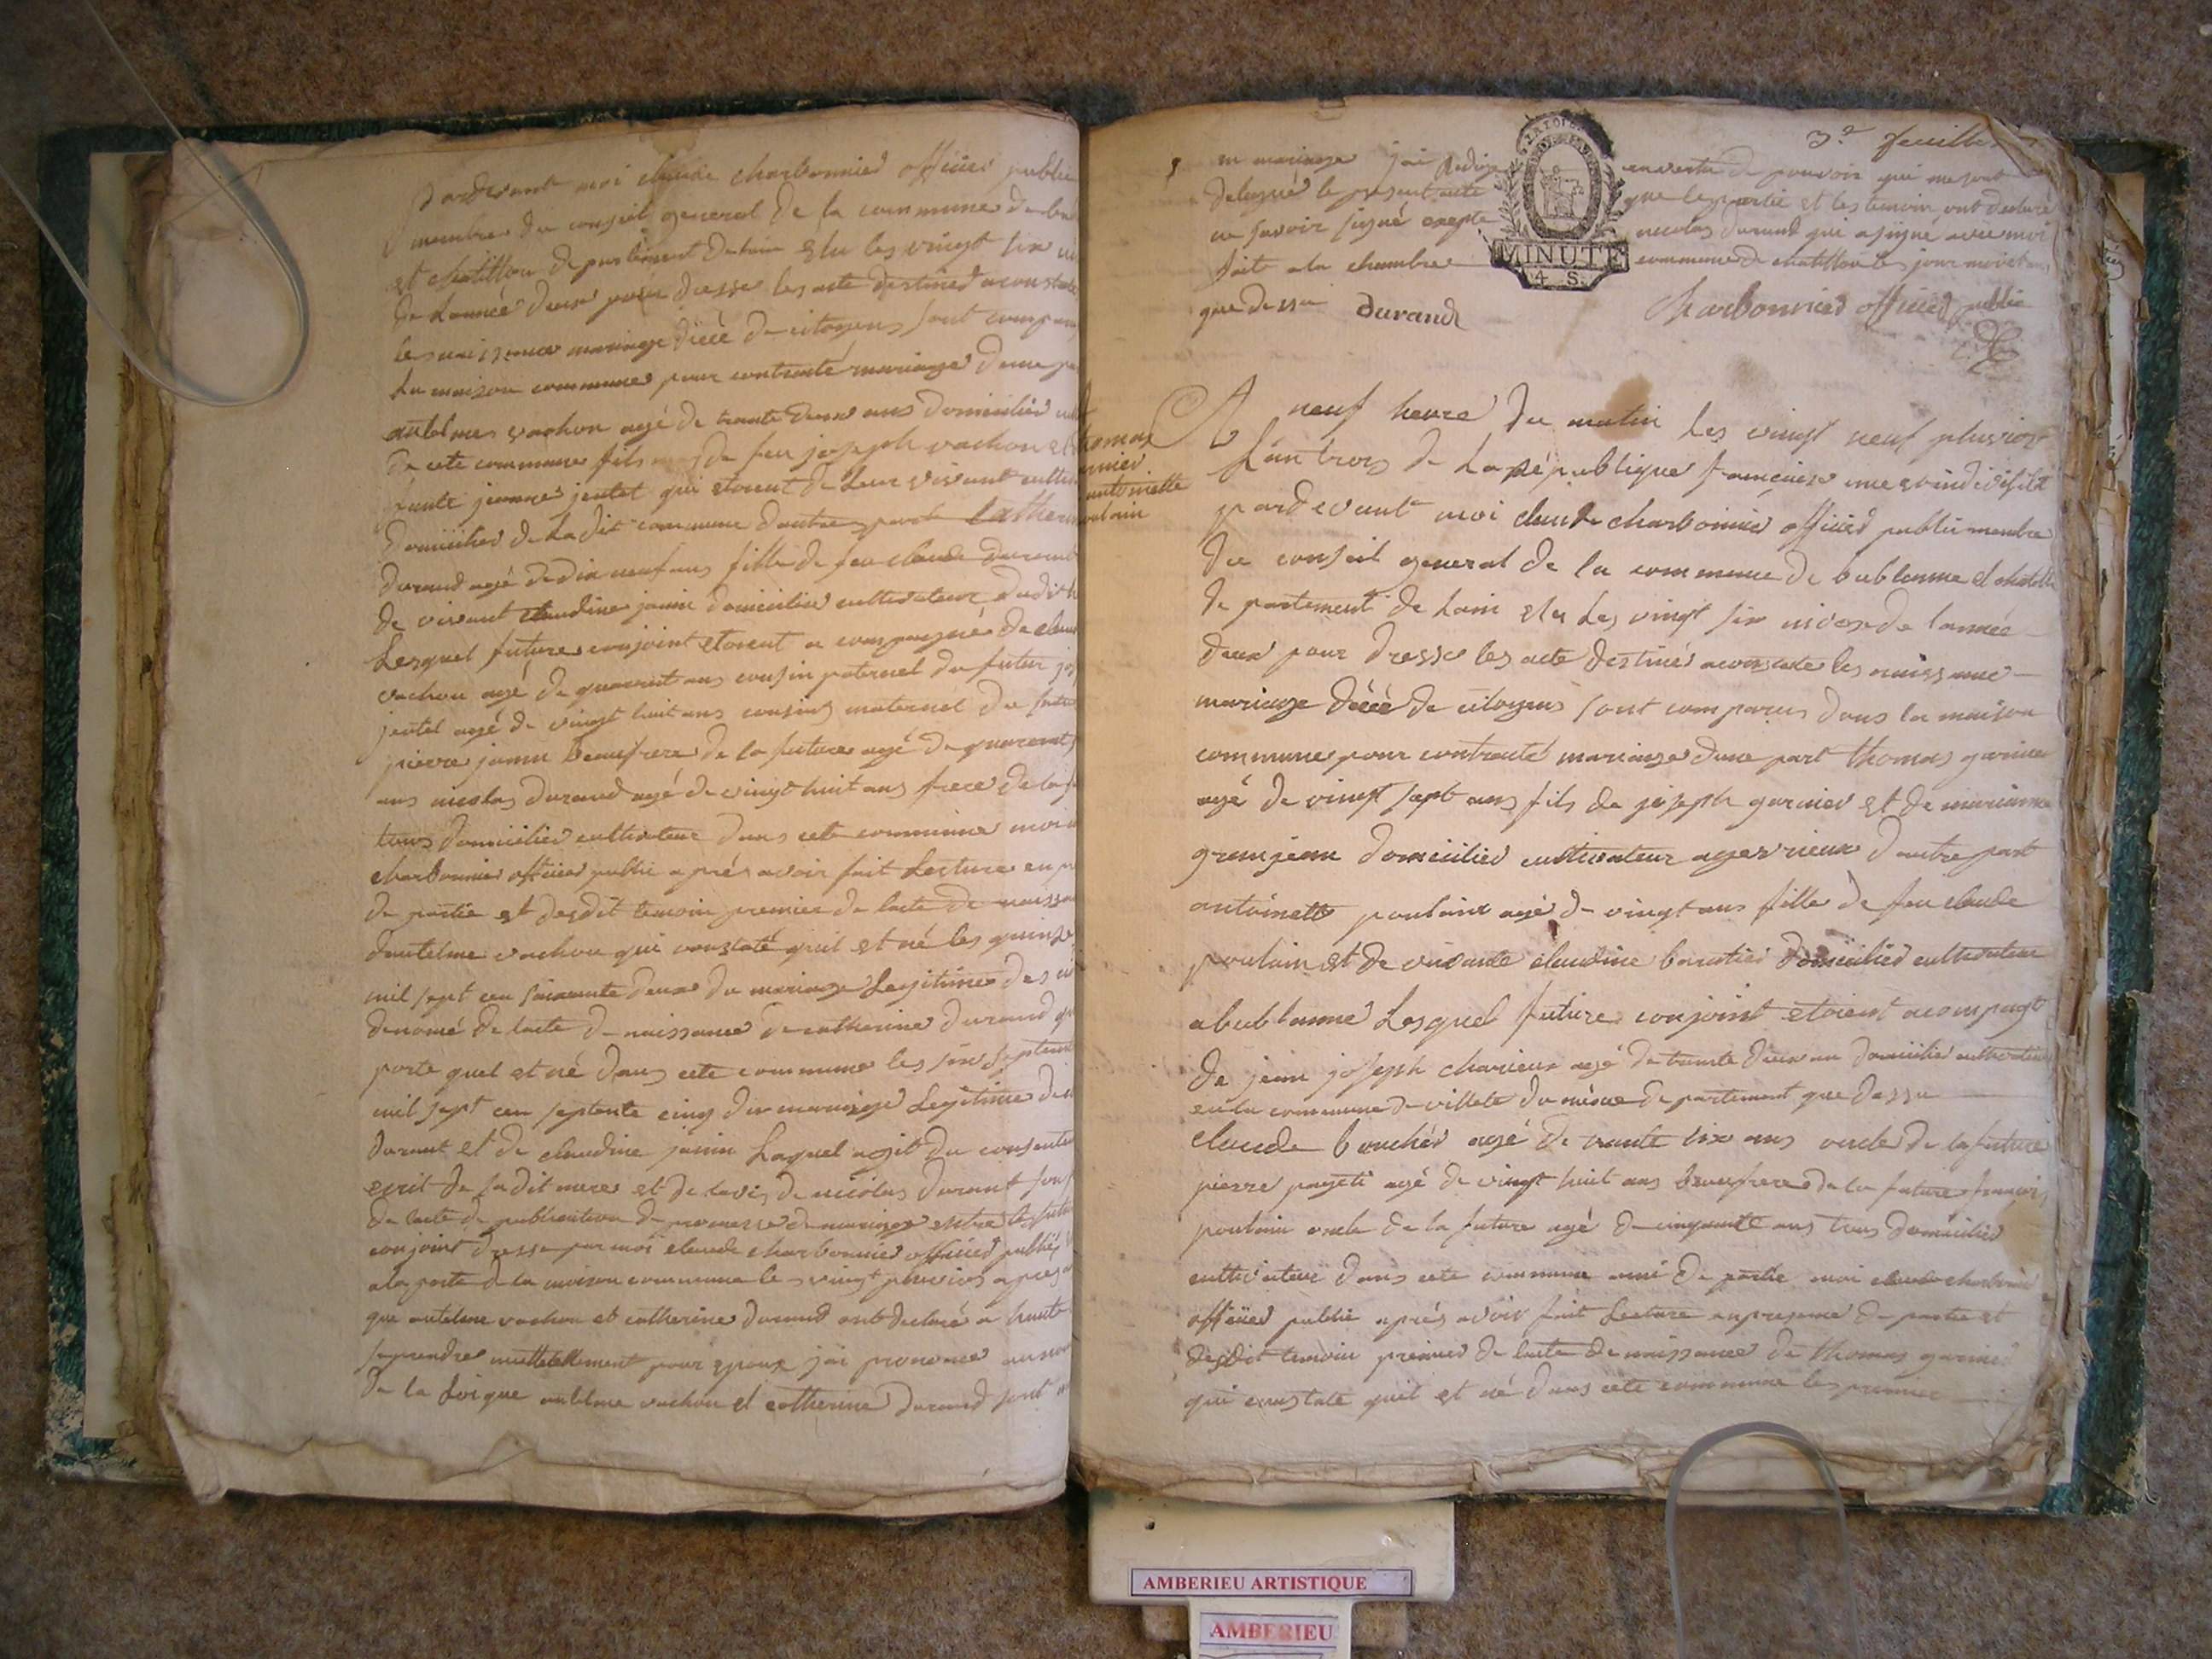 pardevant moi claude charbonnier officier public
membre du conseil general de la commune de
et chatillon departement de lain elu les vingt six
de lannée deux pour dresse les acte destiné a constate
les naissance mariage décè de citoyens sont comparu
la maison commune pour contracté mariage dune
antelme vachon agé de trante deux ans domicilié
de cete commune fils de feu joseph vachon et
jeanne jentet qui etoient de leur vivant
domicilié de la dit commune dautre part Catherine
durand agé de dix neuf ans fille de feu claude durand
de vivant claudine janin domicilié cultivateur
Lesquel future conjoint etoient a compagné de
vachon agé de quarent ans cousin paternel du futur
jentet agé de vingt huit ans cousin maternel du futur
pierre janin beaufrere de la future agé de quarent
ans nicolas durand agé de vingt huit ans frere de la
tous domicilié cultivateur dans cete commune moi
charbonnier officier public aprés avoir fait Lecture en
de partie et desdit temoin premier de lacte de
dantelme vachon qui constaté quil et né les quinze
mil sept cen soixante deux du mariage Legitime des
denomé de lacte de naissance de catherine durand
porte quel et né dans cete commune les six septembre
mil sept cen septente cinq du mariage Legitime de
durant et de claudine janin Laquel agit du
ecrit de sadit mere et de lavis de nicolas durant
de lacte de publication de promesse de mariage entre les
conjoint dresse par moi claude charbonnier officier public
a la porte de la maison commune le vingt pluviose
que antelme vachon et catherine durand ont declaré a haute
se prendre muttuellement pour epoux jai prononcé au nom
de la Loi que antelme vachon et catherine durand sont
3e feuille
en mariage jai redige en vertu de pouvoir qui me sont
delegué le present acte que les partie et les temoin ont declaré
ne savoir signé exepte nicolas durand qui a signe avec moi
fait a la chambre commune de chatillon les jour moi et ans
que dessu durand Charbonnier officier public
LA LOI
MINUTE
4 S.
A neuf heure du matin les vingt neuf pluviose
Lan trois de La république francaise une et indivisible
pardevant moi claude charbonnier officier public membre
du conseil general de la commune de bublanne et chatillon
departement de Lain elu les vingt six nivose de lannée
deux pour dresse les acte destiné aconstate les naissance
mariage décè de citoyens sont comparus dans la maison
commune pour contracté mariage dune part thomas garnier
agé de vingt sept ans fils de joseph garnier et de marianne
granjean domicilié cultivateur a dautre part
antoinette poulain agé de vingt ans fille de feu claude
poulain et de vivante claudine domicilié cultivateur
a bublanne Lesquel future conjoint etoient acompagé
de jean joseph charieux agé de trante deux an domicilié cultivateur
en la commune de villete du même departement que dessu
claude bouchér agé de trante six ans oncle de la future
pierre payeti agé de vingt huit ans beaufrere de la future francois
poulain oncle de la future agé de cinquante ans tous domicilié
cultivateur dans cete commune ami de partie moi claude charbonnier
officier public aprés avoir fait Lecture en presence de partie et
desdit temoin premier de lacte de naissance de thomas garnier
qui constate quil et né dans cete commune les premier
thomas
garnier
antoinette
poulain
AMBERIEU ARTISTIQUE
AMBERIEU